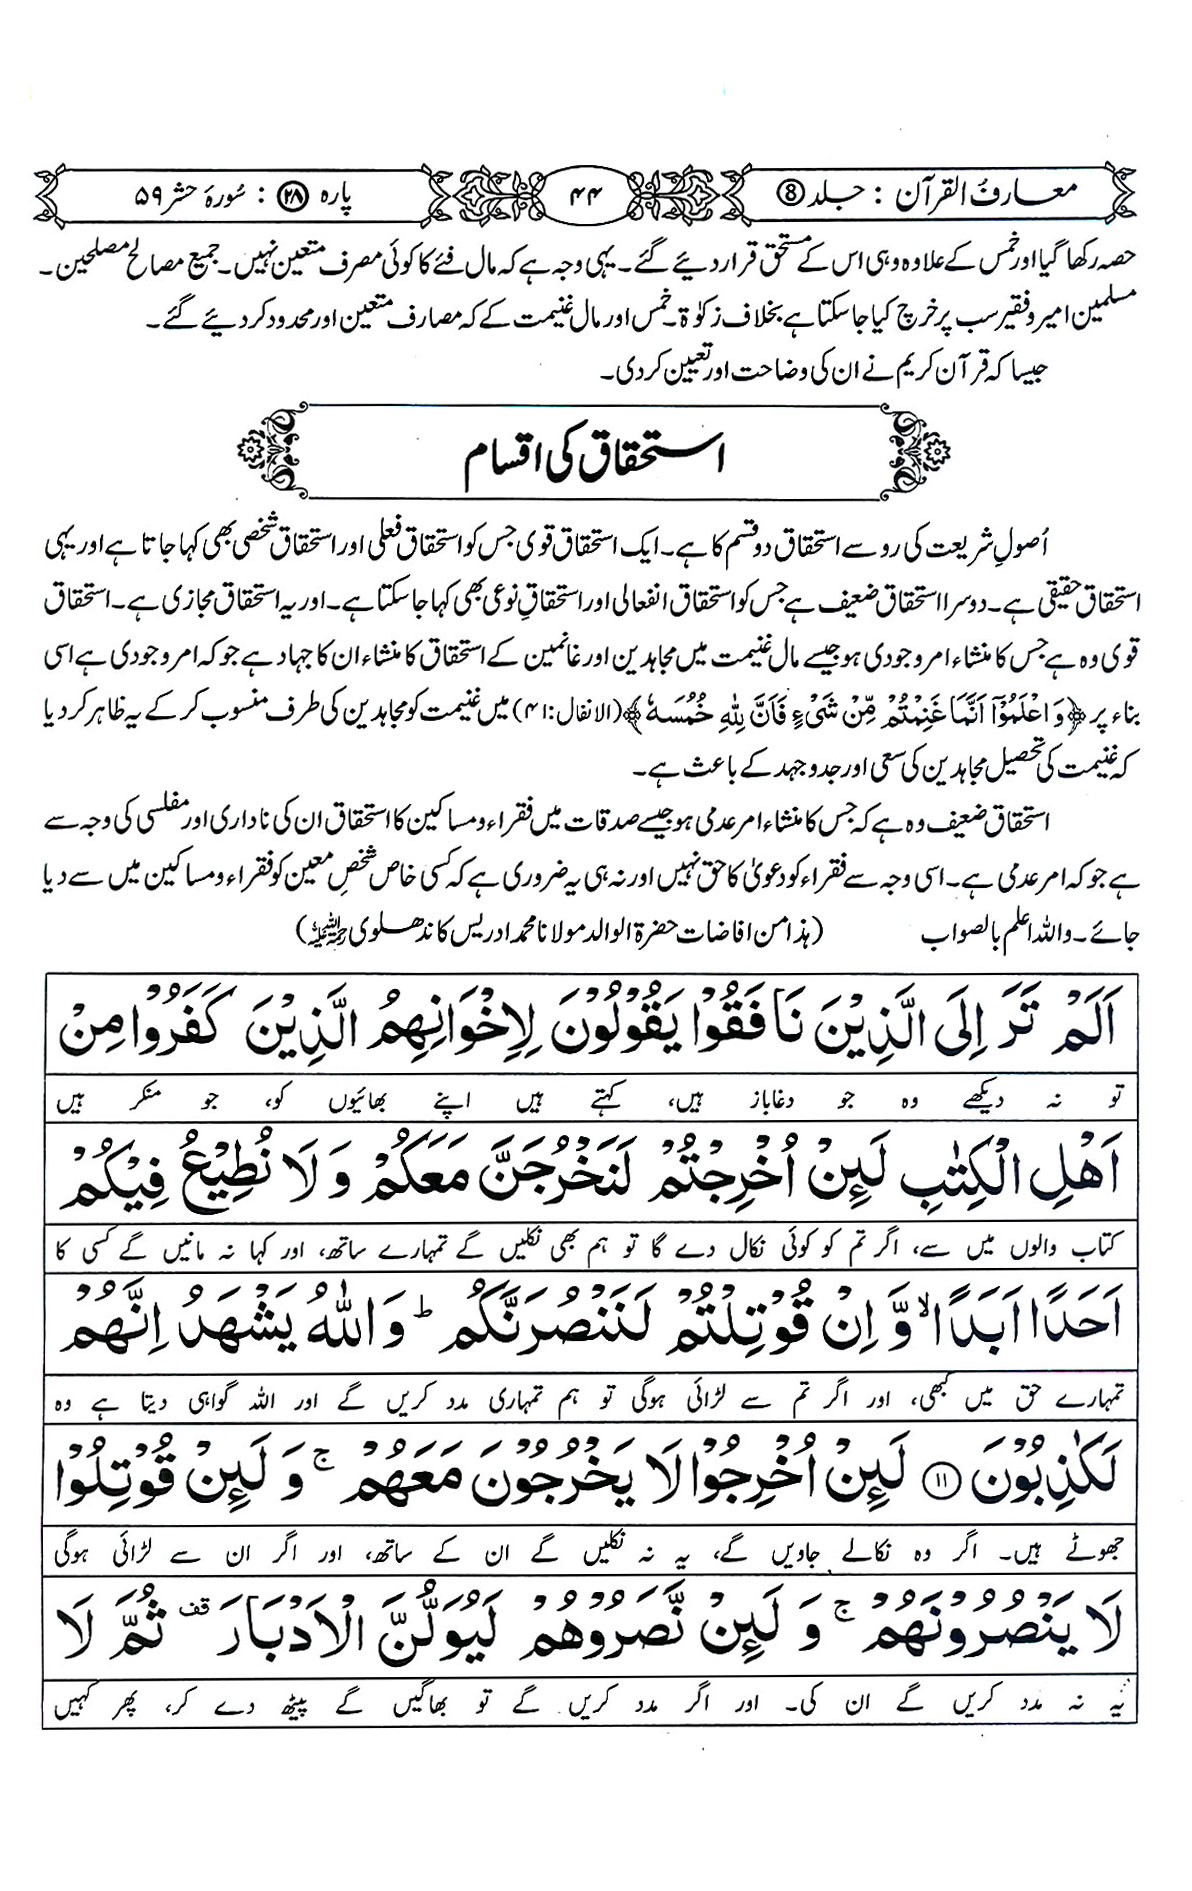 معارفُ القرآن : جلد ⑧
۴۴
پارہ ۲۸ : سُورۂ حشر ۵۹
حصہ رکھا گیا اور خمس کے علاوہ وہی اس کے مستحق قرار دیئے گئے۔ یہی وجہ ہے کہ مال فئے کا کوئی مصرف متعین نہیں۔ جمیع مصالح مصلحین۔
مسلمین امیر و فقیر سب پر خرچ کیا جا سکتا ہے بخلاف زکوٰۃ۔ خمس اور مال غنیمت کے کہ مصارف متعین اور محدود کر دیئے گئے۔
جیسا کہ قرآن کریم نے ان کی وضاحت اور تعیین کر دی۔
استحقاق کی اقسام
اُصولِ شریعت کی رو سے استحقاق دو قسم کا ہے۔ ایک استحقاق قوی جس کو استحقاق فعلی اور استحقاق شخصی بھی کہا جاتا ہے اور یہی
استحقاق حقیقی ہے۔ دوسرا استحقاق ضعیف ہے جس کو استحقاق انفعالی اور استحقاقِ نوعی بھی کہا جا سکتا ہے۔ اور یہ استحقاق مجازی ہے۔ استحقاق
قوی وہ ہے جس کا منشاء امر وجودی ہو جیسے مال غنیمت میں مجاہدین اور غانمین کے استحقاق کا منشاء ان کا جہاد ہے جو کہ امر وجودی ہے اسی
بناء پر ﴿وَاعْلَمُوْٓا اَنَّمَا غَنِمْتُمْ مِّنْ شَیْءٍ فَاَنَّ لِلّٰهِ خُمُسَهٗ﴾ (الانفال:۴۱) میں غنیمت کو مجاہدین کی طرف منسوب کر کے یہ ظاہر کر دیا
کہ غنیمت کی تحصیل مجاہدین کی سعی اور جدوجہد کے باعث ہے۔
استحقاق ضعیف وہ ہے کہ جس کا منشاء امر عدمی ہو جیسے صدقات میں فقراء و مساکین کا استحقاق ان کی ناداری اور مفلسی کی وجہ سے
ہے جو کہ امر عدمی ہے۔ اسی وجہ سے فقراء کو دعویٰ کا حق نہیں اور نہ ہی یہ ضروری ہے کہ کسی خاص شخصِ معین کو فقراء و مساکین میں سے دیا
جائے۔ واللہ اعلم بالصواب (ہذا من افاضات حضرۃ الوالد مولانا محمد ادریس کاندھلوی رحمۃ اللہ علیہ)
اَلَمْ تَرَ اِلَی الَّذِیْنَ نَافَقُوْا یَقُوْلُوْنَ لِاِخْوَانِهِمُ الَّذِیْنَ كَفَرُوْا مِنْ
تو نہ دیکھے وہ جو دغاباز ہیں، کہتے ہیں اپنے بھائیوں کو، جو منکر ہیں
اَهْلِ الْكِتٰبِ لَىِٕنْ اُخْرِجْتُمْ لَنَخْرُجَنَّ مَعَكُمْ وَ لَا نُطِیْعُ فِیْكُمْ
کتاب والوں میں سے، اگر تم کو کوئی نکال دے گا تو ہم بھی نکلیں گے تمہارے ساتھ، اور کہا نہ مانیں گے کسی کا
اَحَدًا اَبَدًا ۙ وَّ اِنْ قُوْتِلْتُمْ لَنَنْصُرَنَّكُمْ ؕ وَ اللّٰهُ یَشْهَدُ اِنَّهُمْ
تمہارے حق میں کبھی، اور اگر تم سے لڑائی ہوگی تو ہم تمہاری مدد کریں گے اور اللہ گواہی دیتا ہے وہ
لَكٰذِبُوْنَ ۝۱۱ لَىِٕنْ اُخْرِجُوْا لَا یَخْرُجُوْنَ مَعَهُمْ ۚ وَ لَىِٕنْ قُوْتِلُوْا
جھوٹے ہیں۔ اگر وہ نکالے جاویں گے، یہ نہ نکلیں گے ان کے ساتھ، اور اگر ان سے لڑائی ہوگی
لَا یَنْصُرُوْنَهُمْ ۚ وَ لَىِٕنْ نَّصَرُوْهُمْ لَیُوَلُّنَّ الْاَدْبَارَ ۫ ثُمَّ لَا
یہ نہ مدد کریں گے ان کی۔ اور اگر مدد کریں گے تو بھاگیں گے پیٹھ دے کر، پھر کہیں